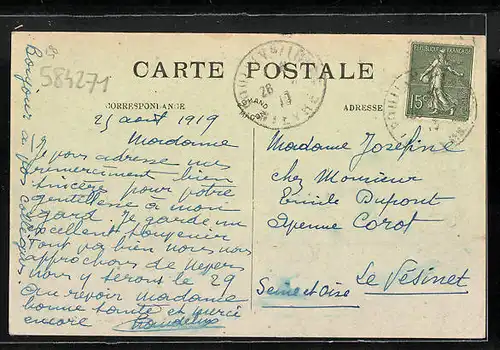 584271
CARTE POSTALE
CORRESPONDANCE
ADRESSE
REPUBLIQUE FRANÇAISE
15c
28
25 aout 1919
Madame
Je vous adresse mes
remerciment bien
sincère pour votre
gentillesse à mon
égard. Je garde un
excellent souvenir
Tout va bien nous nous
approchons de Nevers
nous y serons le 29
Au revoir madame
bonne santé et merci
encore
Bonjour à vos collègues
Madame Josefine
chez Monsieur
Emile Dupont
Avenue Corot
Le Vésinet
Seine et Oise